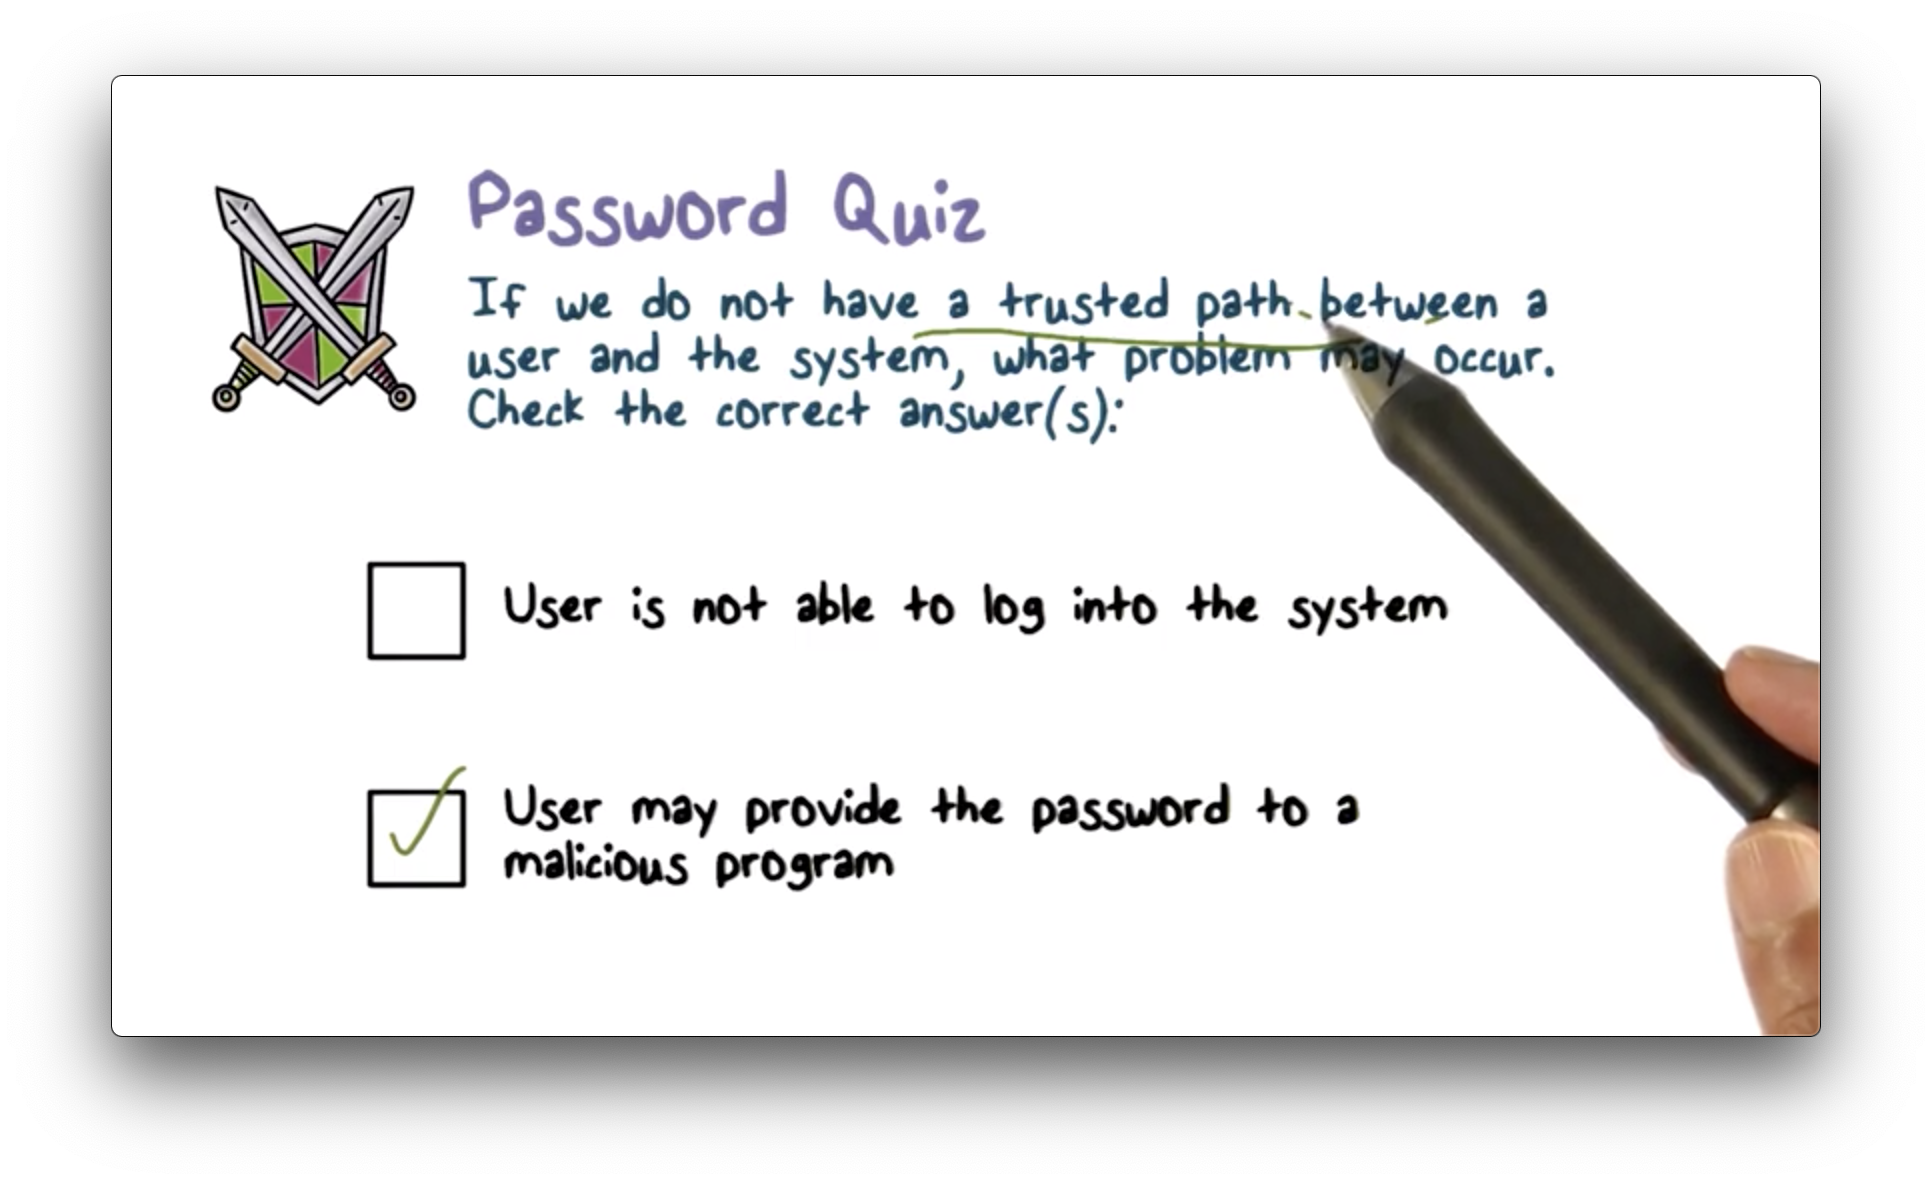 Password Quiz
If we do not have a trusted path between a
user and the system, what problem may occur.
Check the correct answer(s):
User is not able to log into the system
User may provide the password to a
malicious program